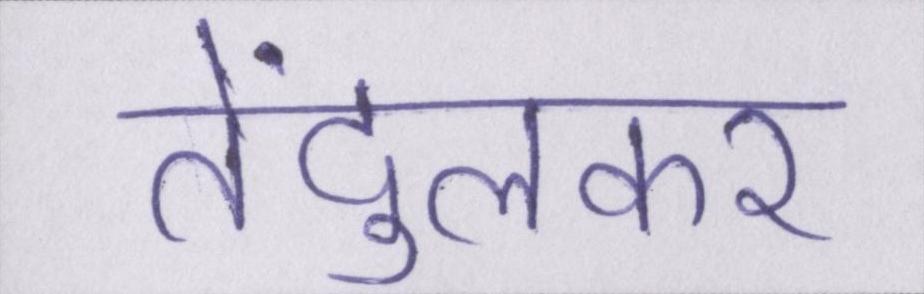 तेंदुलकर